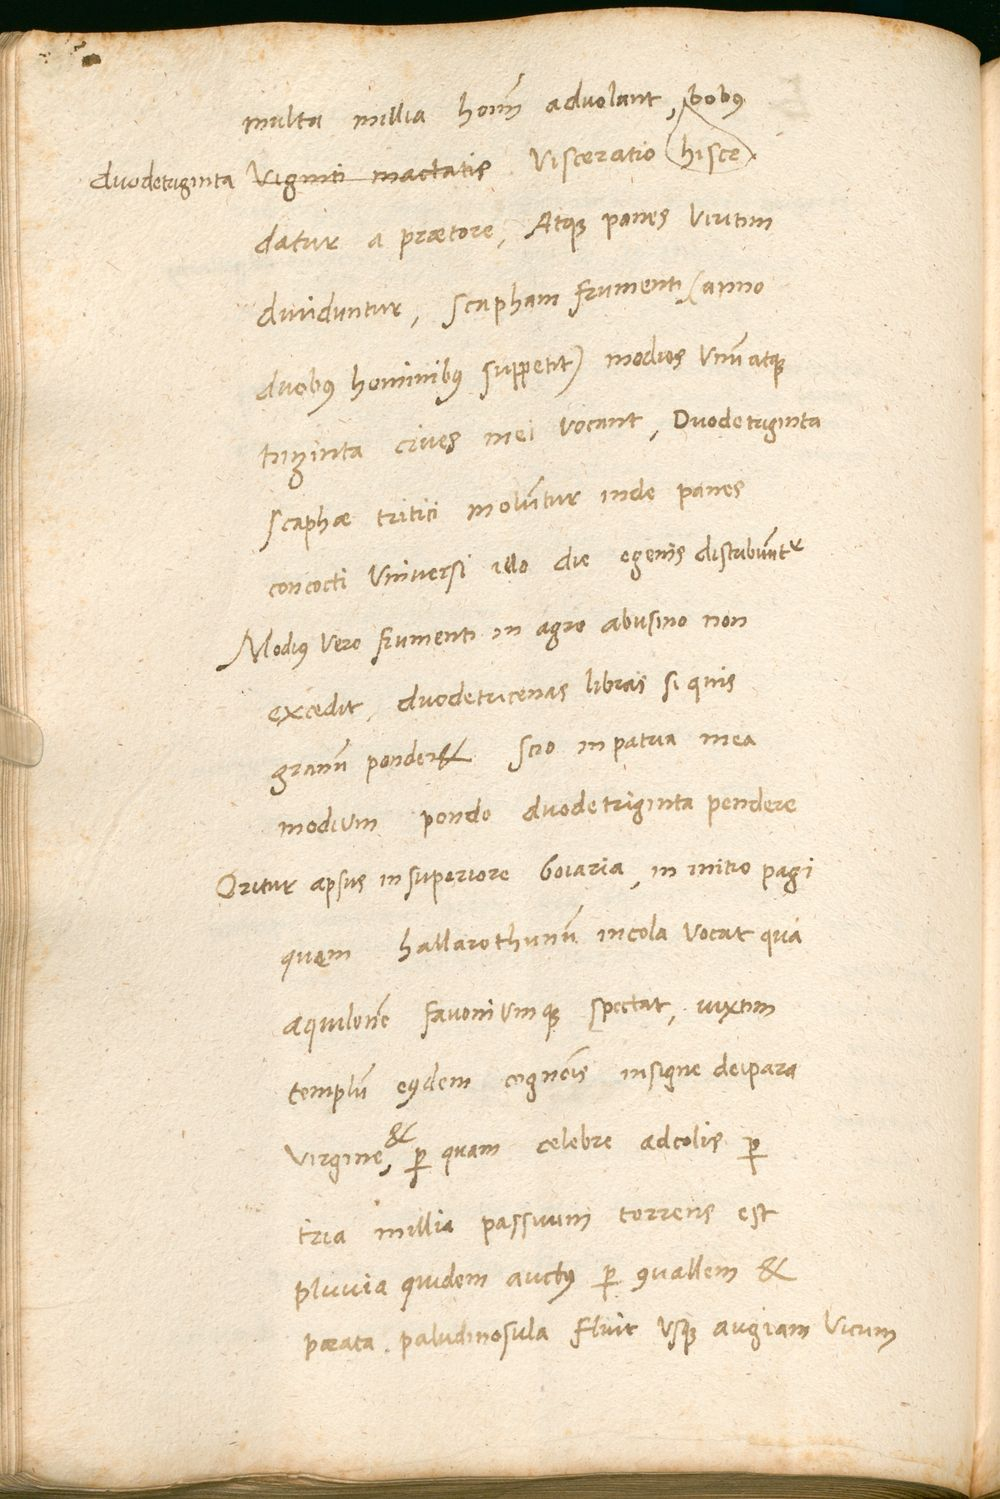 multa millia hom̄ advolant, bobus
duodetriginta Viginti mactatis Visceratio hisce
datur a prætore, Atqz panes Viritim
dividuntur, scapham frumenti (anno
duobus hominibus suppetit) modios Unū atqz
triginta cives mei vocant, Duodetriginta
scaphæ tritici molūtur inde panes
concocti Universi illo die egenis distribūtr
Modius Vero frumenti in agro abusino non
excedit, duodetricenas libras si quis
granū ponderet scio in patria mea
modium pondo duodetriginta pendere
Oritur apsus in superiore boiaria, in initio pagi
quem hallarothunū incola Vocat qua
aquilonē favoniumqz spectat, iuxtim
templū eiusdem cognōis insigne deipara
Virgine, & p̱ quam celebre adcolis p̱
tria millia passuum torrens est
pluvia quidem auctus p̱ ꝯvallem &
parata paludinosula fluit usqz augiam Vicum